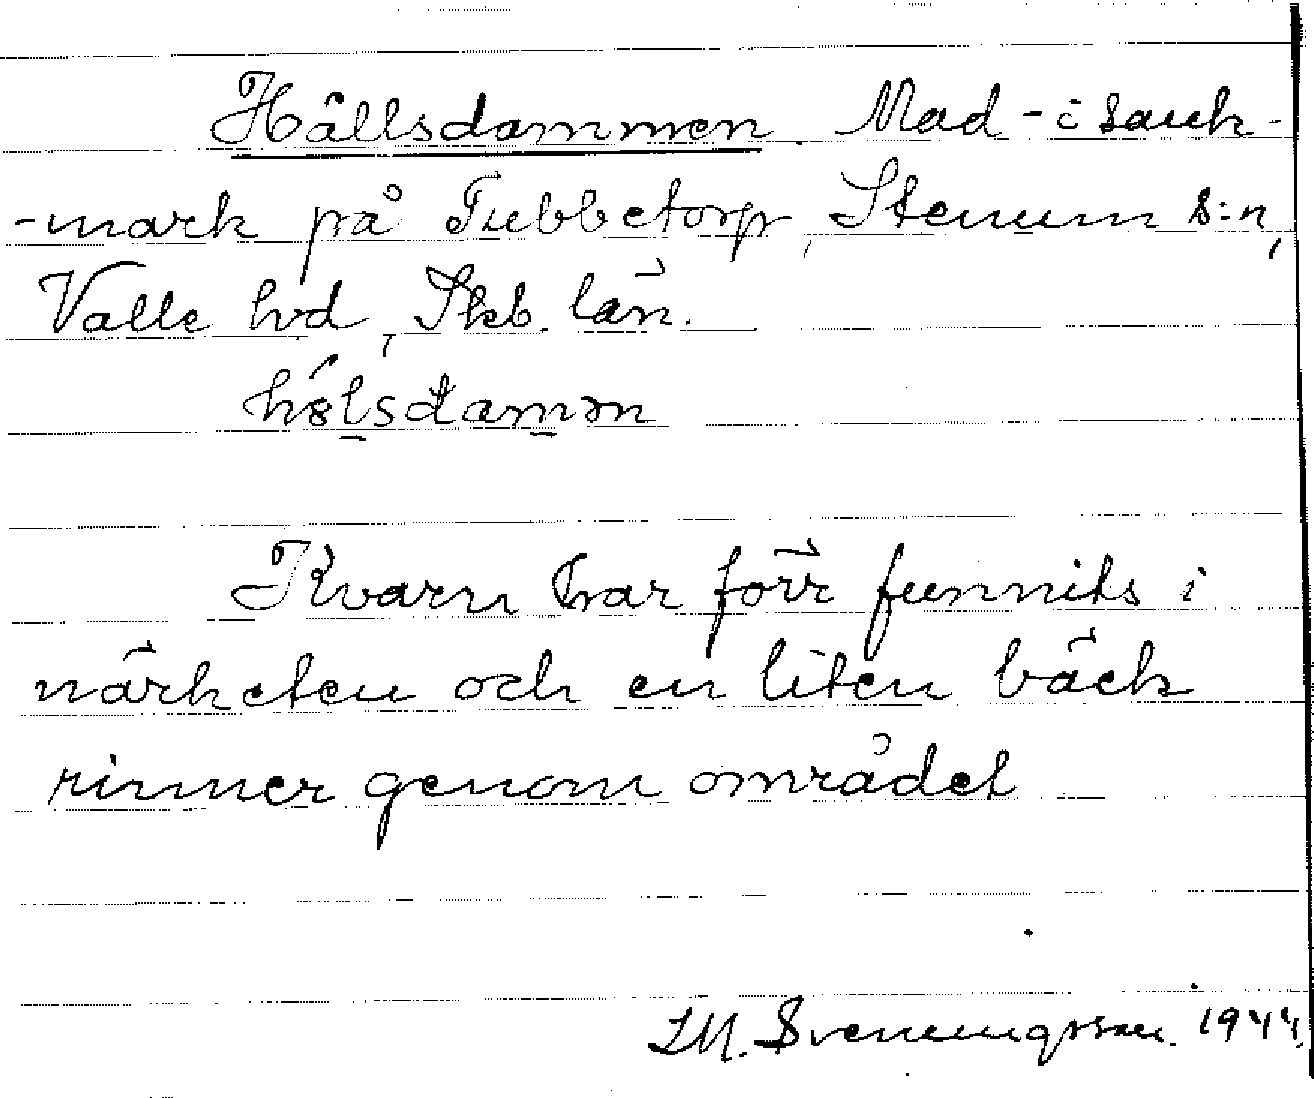 Hållsdammen. Mad - i sank-
-mark på Tubbetorp, Stenum s:n,
Valle hd, Skb. län.
Kvarn har förr funnits i
närheten och en liten bäck
rinner genom området
Svenningsson. 1944.